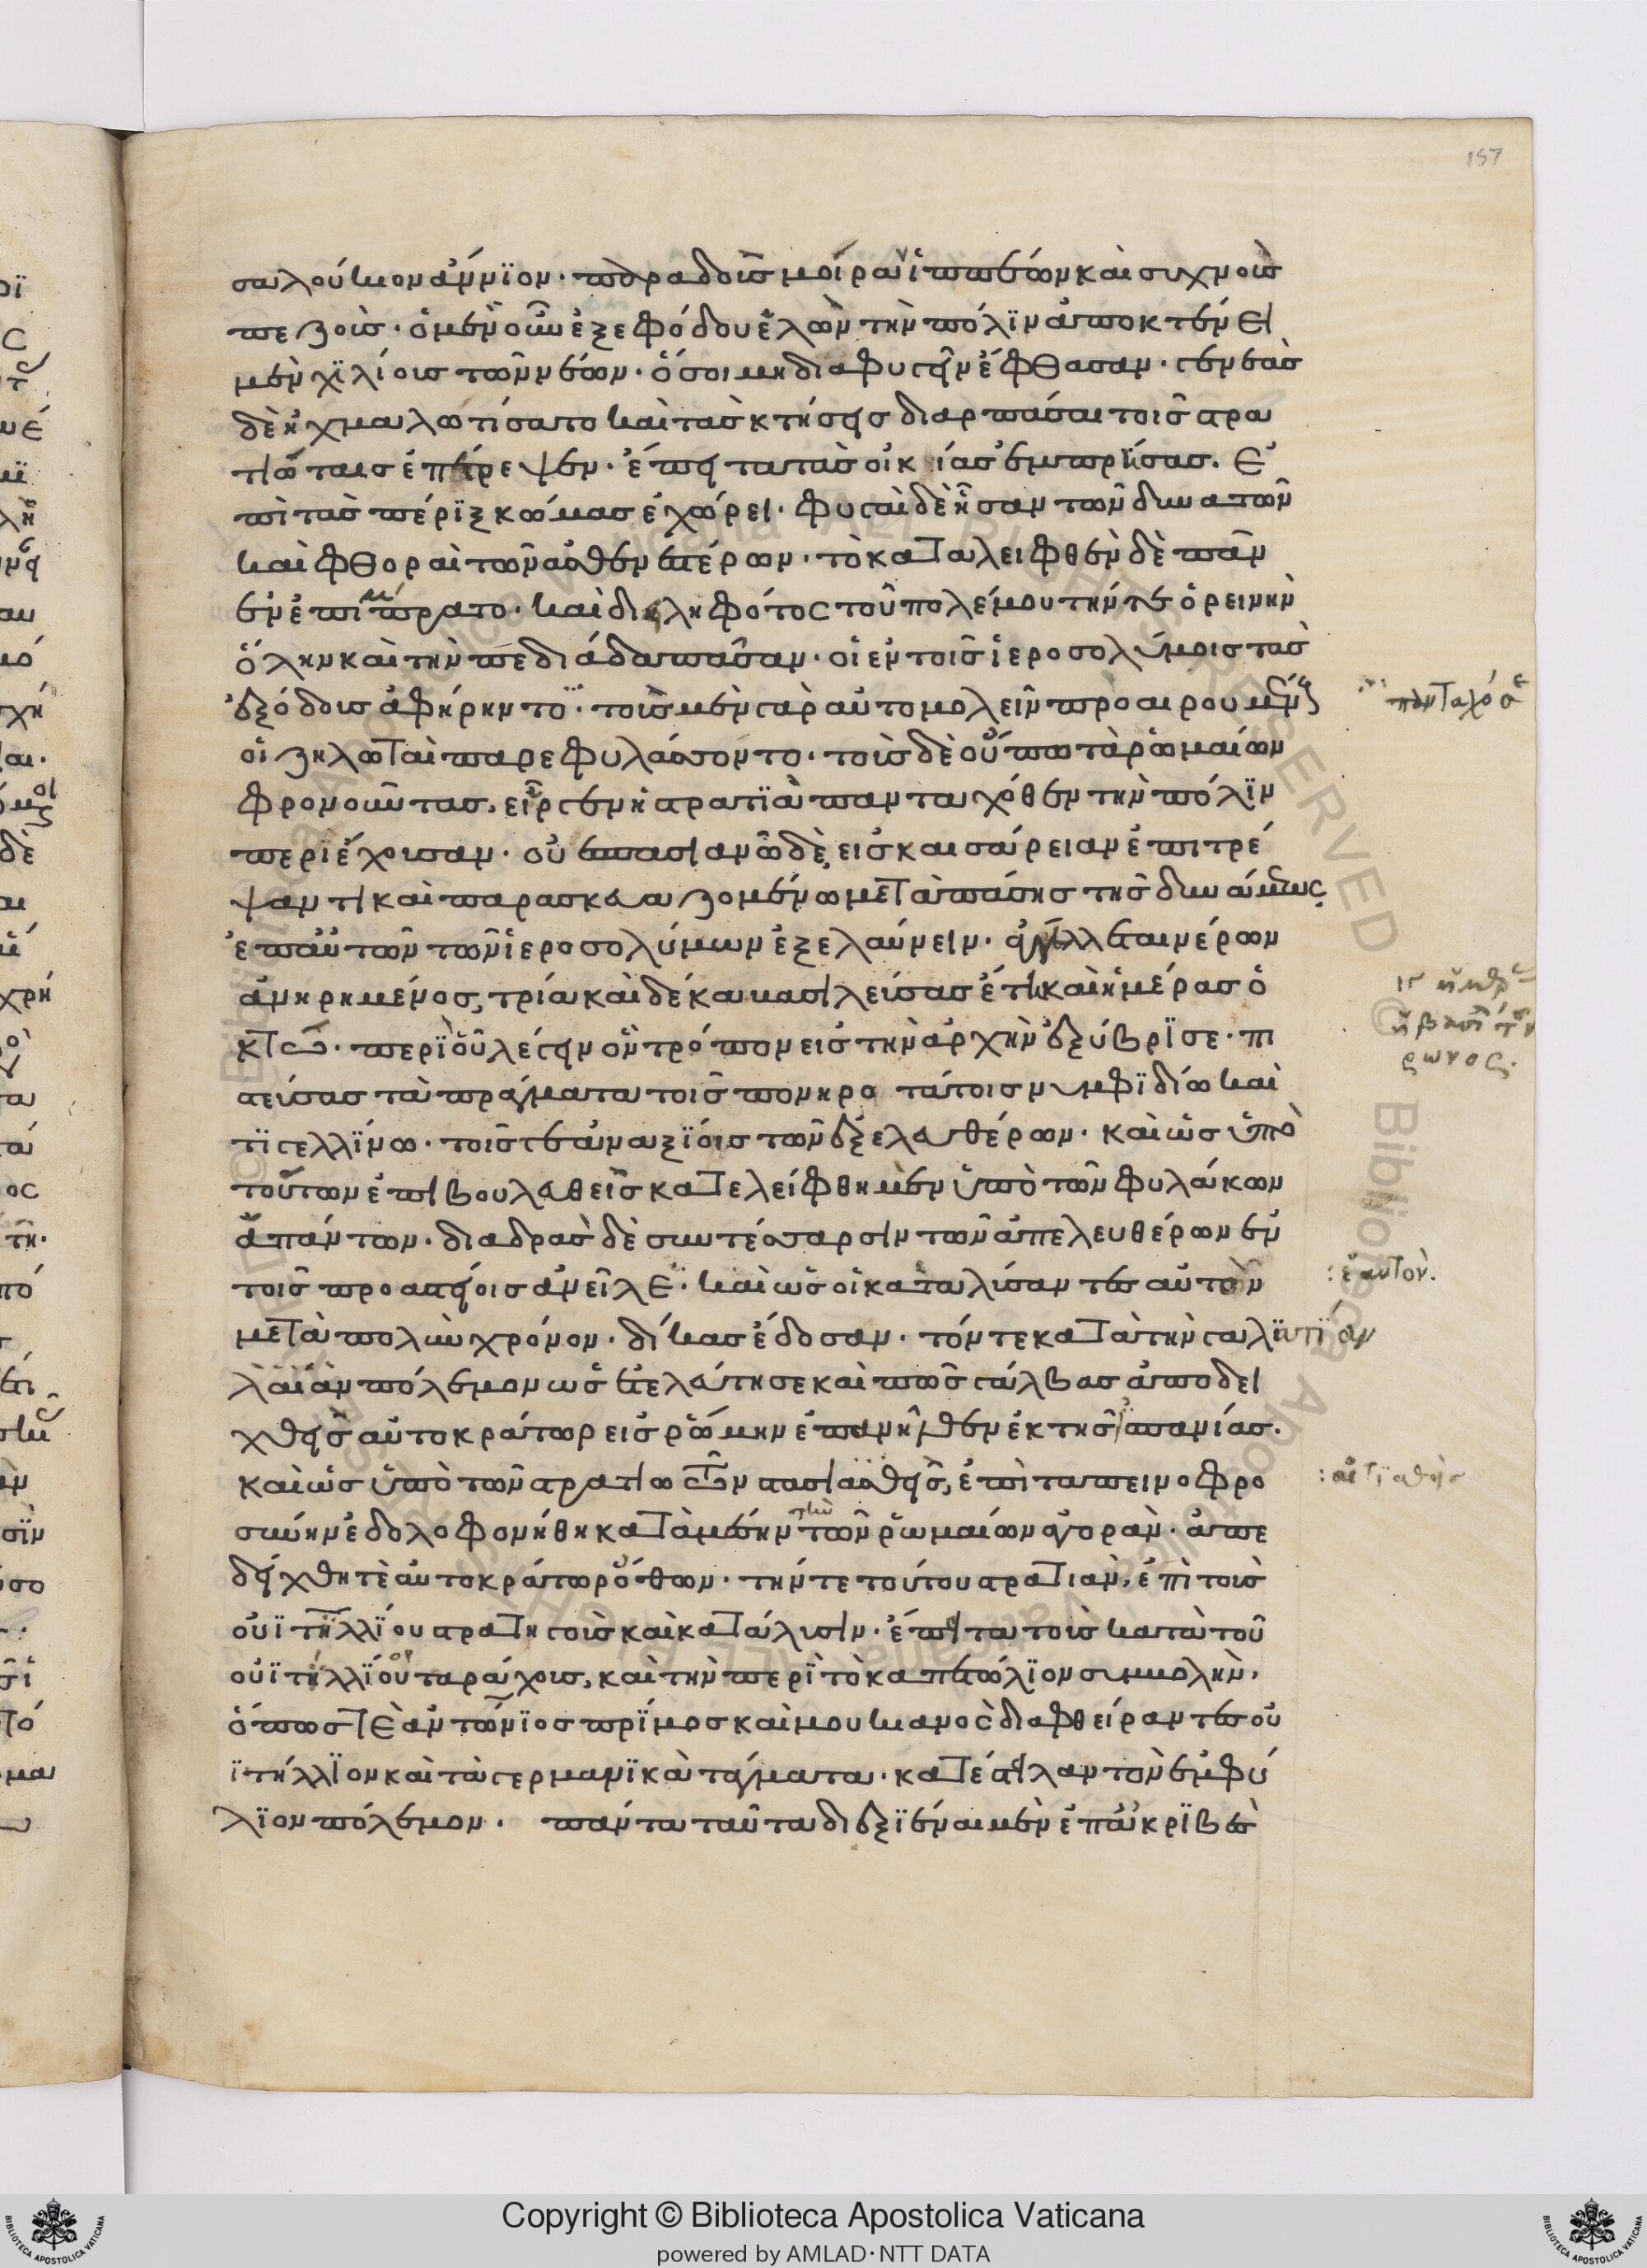 157
σα λούκιον ἄννϊον· παραδοὺς μοίραν ἱππέων καὶ συχνοὺς
πεζούς· ὁ μὲν οὖν ἐξ ἐφόδου ἑλὼν τὴν πόλϊν ἀποκτένει
μὲν χϊλίους τῶν νέων· ὅσοι μὴ διαφυγεῖν ἔφθασαν· γενεὰς
δὲ ἠχμαλωτίσατο καὶ τὰς κτήσεις διαρπάσαι τοῖς στρα
τιώταις ἐπέτρεψεν· ἔπειτα τὰς οἰκίας ἐμπρήσας. ἐ
πὶ τὰς πέρϊξ κώμας ἐχώρει· φυγαὶ δὲ ἦσαν τῶν δυνατῶν
καὶ φθοραὶ τῶν ἀσθενεστέρων· τὸ καταλειφθὲν δὲ πᾶν
ἐνεπίμπρατο· καὶ διειληφότος τοῦ πολέμου τήν τε ὀρεινὴν
ὅλην καὶ τὴν πεδιάδα πᾶσαν· οἱ ἐν τοῖς ἱεροσολύμοις τὰς
ἐξόδους ἀφήρηντο· τοὺς μὲν γὰρ αὐτομολεῖν προαιρουμένους
οἱ ζηλωταὶ παρεφυλάσσοντο· τοὺς δὲ οὔπω τὰ ῥωμαίων
φρονοῦντας, εἶργεν ἡ στρατϊὰ πανταχόθεν τὴν πόλϊν
περϊέχουσαν· οὐεσπασιανῶ δὲ, εἰς καισάρειαν ἐπιτρέ
ψαντι καὶ παρασκευαζομένω μετὰ πάσης τῆς δυνάμεως
ἐπ αὐτῶν τῶν ἱεροσολύμων ἐξελαύνειν· ἀγγέλλεται νέρων
ἀνηρημένος, τρία καὶ δέκα βασιλεύσας ἔτη καὶ ἡμέρας ὀ
κτώ· περὶ οὗ λέγειν ὃν τρόπον εἰς τὴν ἀρχὴν ἐξύβρϊσε· πι
στεύσας τὰ πράγματα τοῖς πονηροτάτοις νυμφϊδίω καὶ
τϊγελλϊνω· τοῖς τε ἀναξϊόις τῶν ἐξελευθέρων· καὶ ὡς ὑπὸ
τούτων ἐπιβουλευθεὶς κατελείφθη μὲν ὑπὸ τῶν φυλάκων
ἁπάντων· διαδρὰς δὲ σὺν τέσσαρσιν τῶν ἀπελευθέρων ἐν
τοῖς προαστείοις ἀνεῖλε· καὶ ὡς οἱ καταλύσαντες αὐτὸν
μετὰ πολὺν χρόνον· δίκας ἔδοσαν· τόν τε κατὰ τὴν γαλ
λίαν πόλεμον ὡς ἐτελεύτησε καὶ πῶς γάλβας ἀποδει
χθεὶς αὐτοκράτωρ εἰς ῥώμην ἐπανῆλθεν ἐκ τῆς ἱσπανίας.
καὶ ὡς ὑπὸ τῶν στρατιωτῶν στασιασθεὶς, ἐπὶ ταπεινοφρο
σύνη ἐδολοφονήθη κατὰ μέσην τὴν τῶν ῥωμαίων ἀγοράν· ἀπε
δείχθη τὲ αὐτοκράτωρ ὄθων· τήν τε τούτου στρατιὰν, ἐπὶ τοὺς
οὐϊτηλλΐου στρατηγοὺς καὶ κατάλυσιν· ἔπειτα τοὺς κατὰ τοῦ
οὐϊτηλλϊου ταράχους, καὶ τὴν περὶ τὸ καπετώλϊον συμβολὴν,
ὅπως τὲ ἀντώνϊος πρῖμος καὶ μουκιανὸς διαφθείραντες οὐ
ϊτήλλϊον καὶ τὰ γερμανϊκὰ τάγματα· κατέστειλαν τὸν ἐμφύ
λϊον πόλεμον· πάντα ταῦτα διεξϊέναι μὲν ἐπ ἀκρϊβὲς
ἑαυτόν.
στασιασθεὶς
Copyright © Biblioteca Apostolica Vaticana
powered by AMLAD·NTT DATA